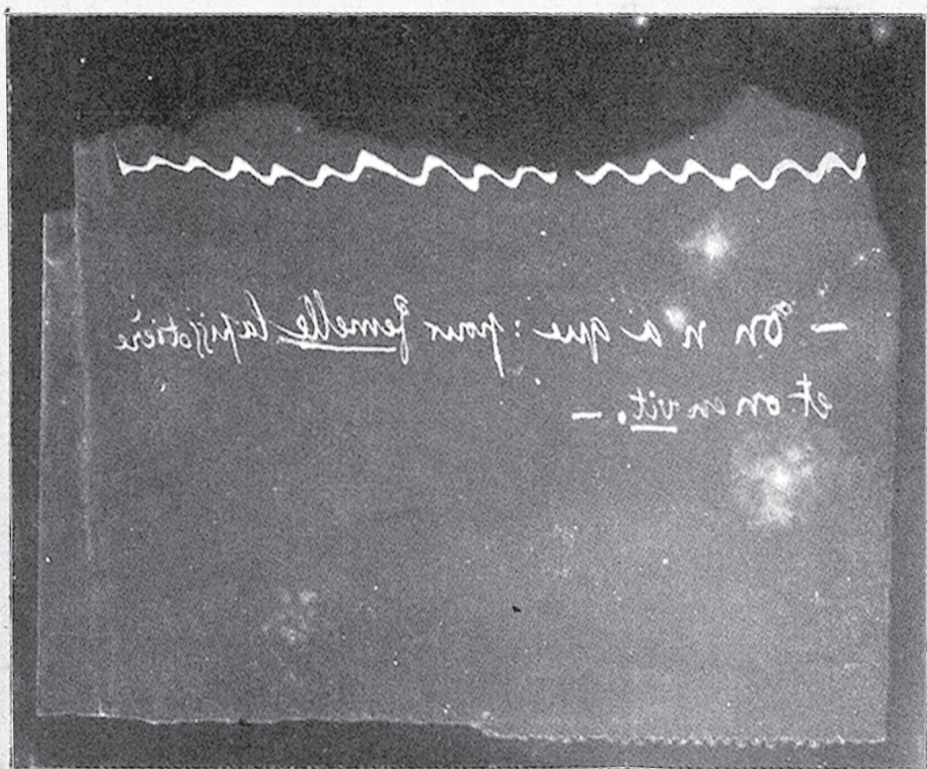 — On n a que : pour femelle la pissotière
et on en vit. —